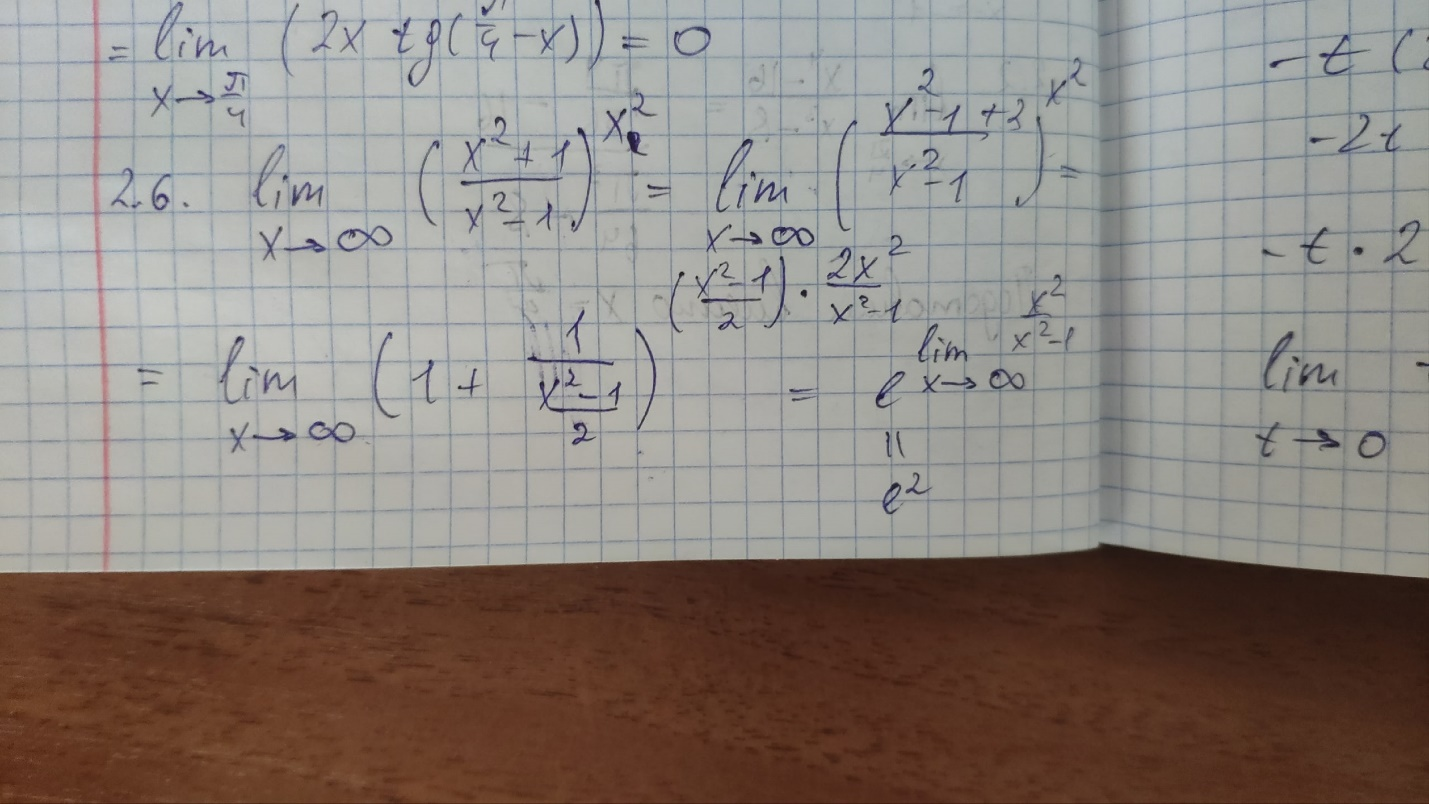 = lim (2x tg(π/4 − x)) = 0
x→π/4
2.6. lim ((x²+1)/(x²−1))^x² = lim ((x²−1+3)/(x²−1))^x² =
x→∞ x→∞
= lim (1 + 1/((x²−1)/2))^(((x²−1)/2)·(2x²/(x²−1))) = e^(lim x→∞ x²/(x²−1))
x→∞
=
e²
−t (
−2t
−t · 2
lim
t→0